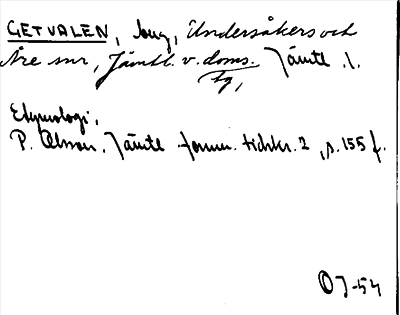 GETVALEN, bing, Undersåkers och
Åre snr, Jämtl. v. doms. Jämtl. l.
tg,
Etymologi.
P. Olsson. Jämtl. fornm. tidskr. 2, s. 155 f.
OJ-54